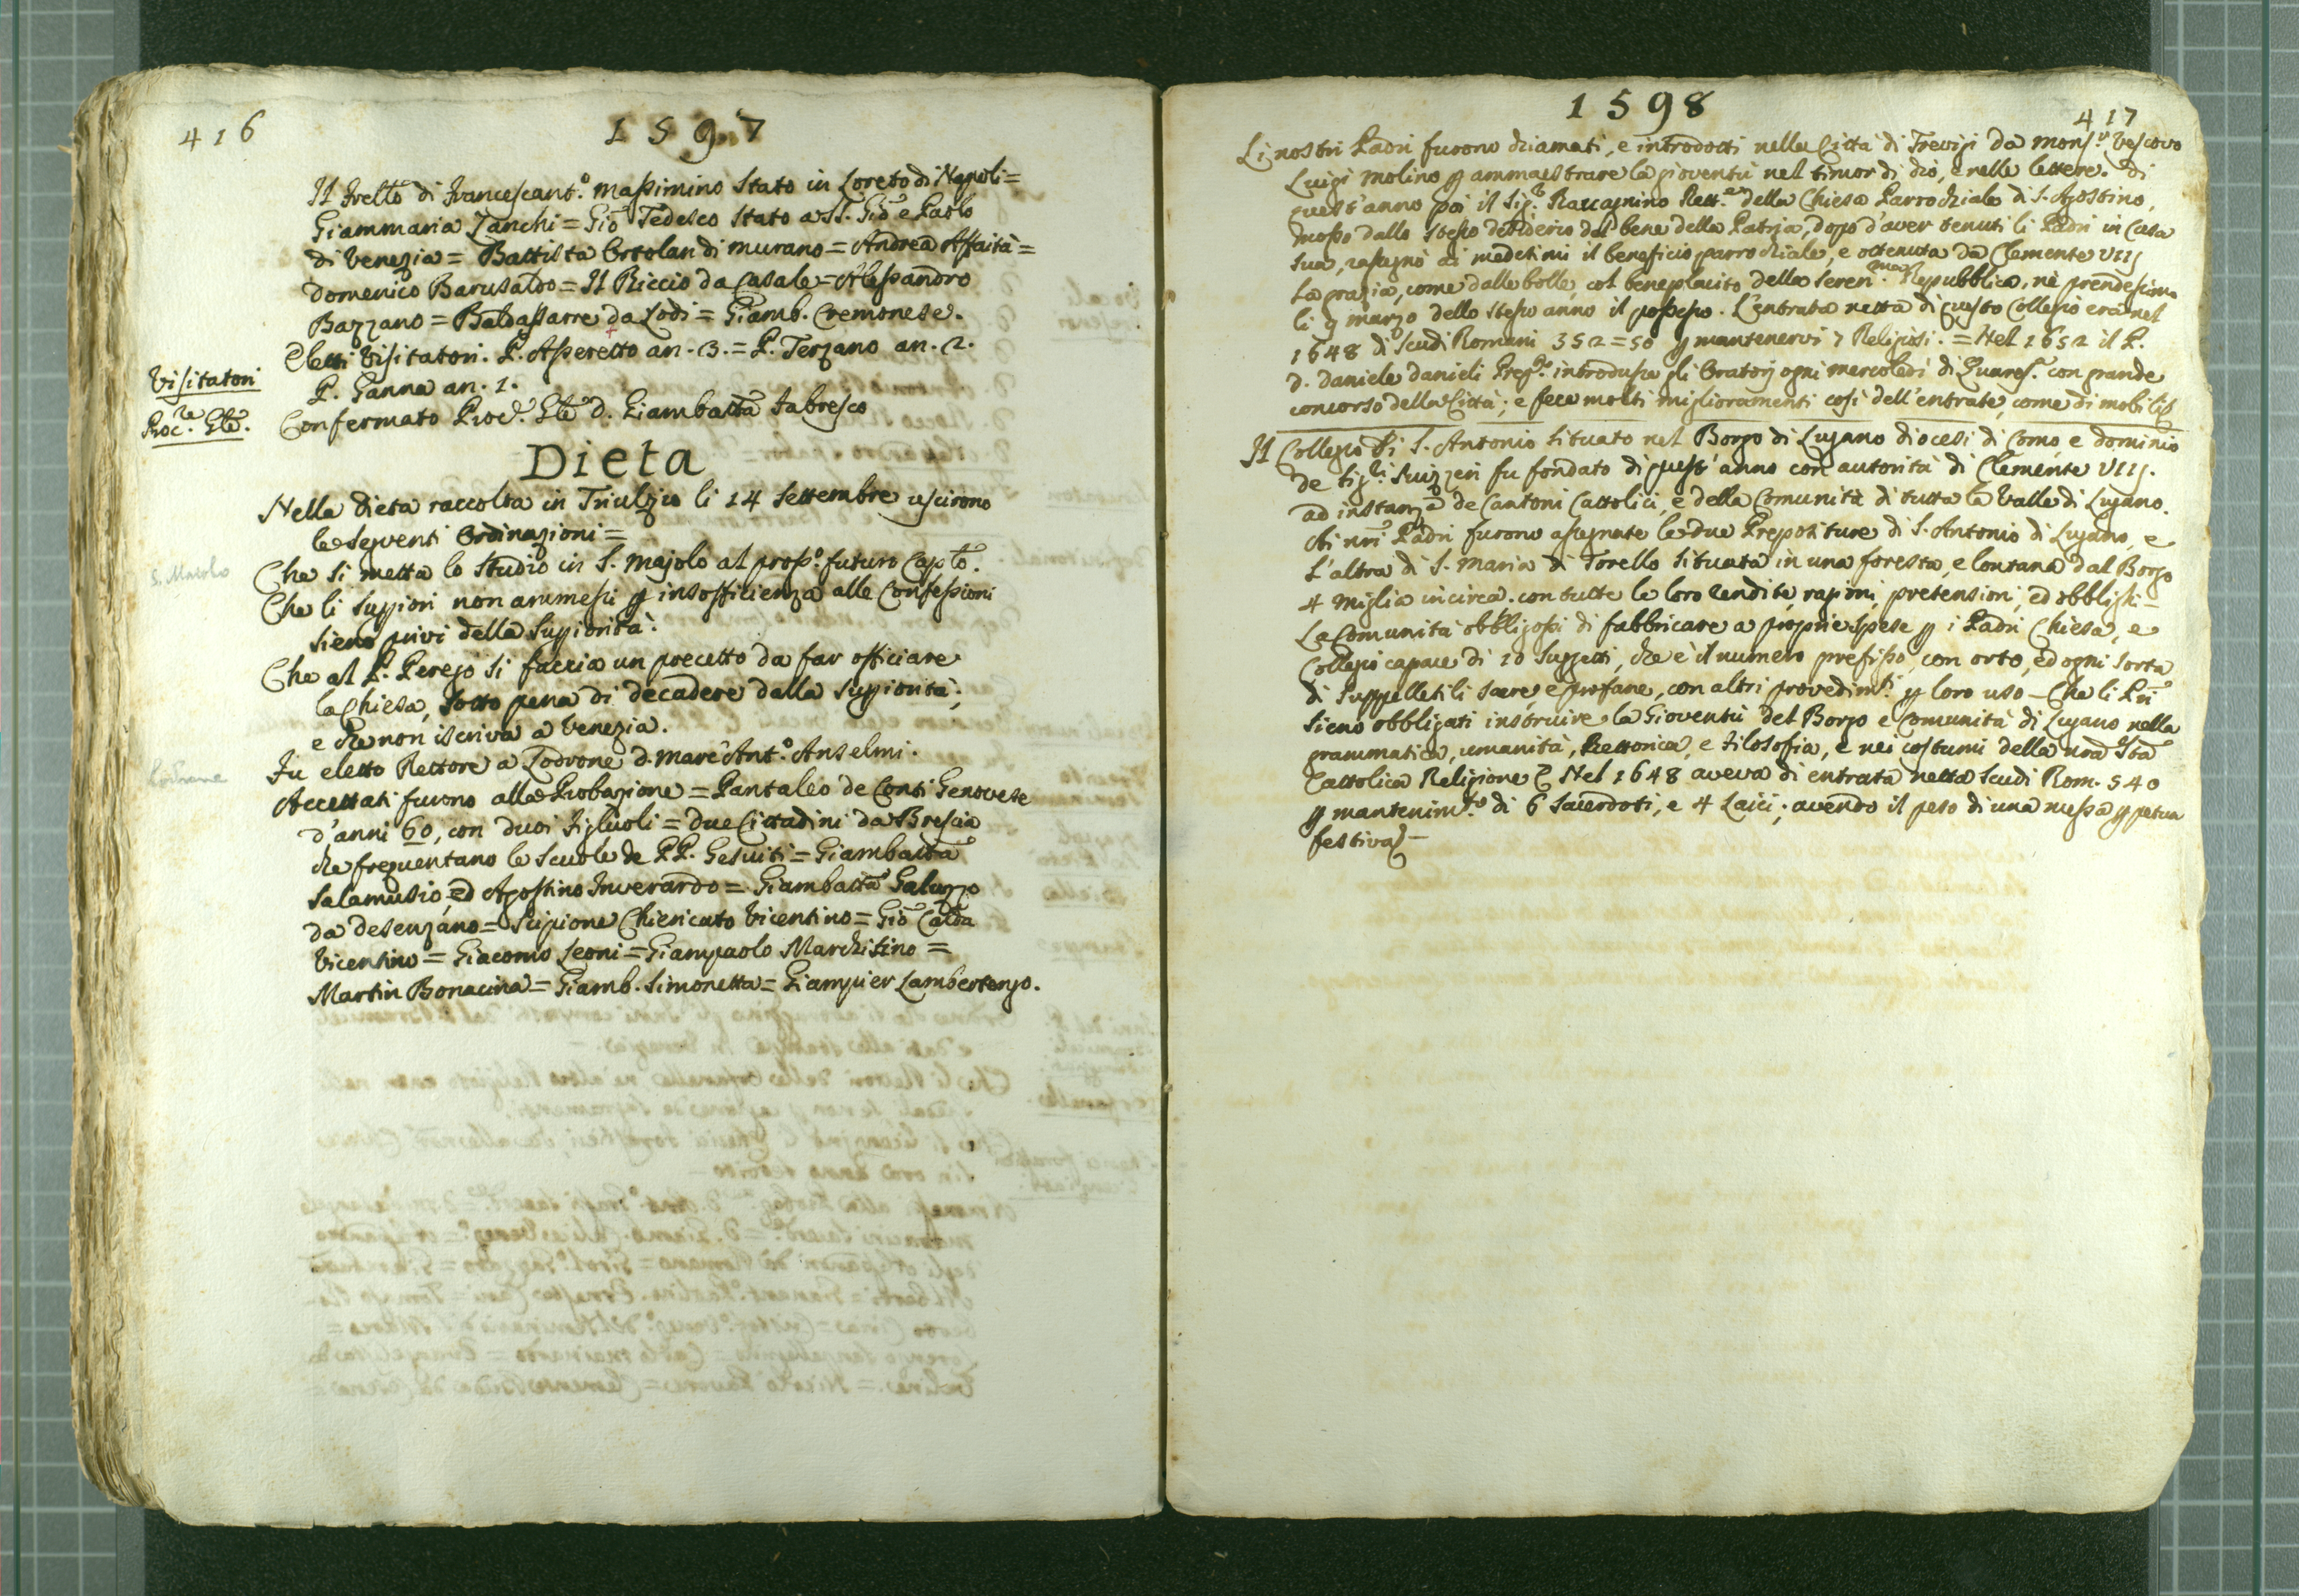 416
1597
Il Frello di Francescant.o Massimino stato in Loreto di Napoli=
Giammaria Zanchi = Gio Tedesco stato a SS. Gio e Paolo
di Venezia = Battista Ortolan di Murano = Andrea Affaità =
Domenico Barusaldo = Il Riccio da Casale = Alessandro
Bazzano = Baldassarre da Lodi = Giamb. Cremonese.
Eletti Visitatori. P. Asperetto an. 3. = P. Terzano an. 2.
P. Ganna an. 1.
Visitatori
Confermato Proc.re Gle d. Giambatta Fabresco
Proc.re Gle.
Dieta
Nella dieta raccolta in Triulzio li 14 Settembre uscirono
le seguenti Ordinazioni =
Che si metta lo Studio in S. Majolo al pross.o futuro Caplo.
S. Maiolo
Che li Suppiori non ammessi p insofficienza alle Confessioni
sieno privi della Suppiorità.
Che al P. Perego si faccia un precetto da far officiare
la Chiesa, sotto pena di decadere dalla suppiorità;
e che non iscriva a Venezia.
Fu eletto Rettore a Lodrone d. Marc'Ant.o Anselmi.
Lodrone
Accettati furono alla Probazione = Pantaleo de Conti Genovese
d'anni 60, con duoi figliuoli = due Cittadini da Brescia
che frequentano le Scuole de PP. Gesuiti = Giambatta
Salamusio, ed Agostino Inverardo = Giambatta Galuzzo
da Desenzano = Scipione Chiericato Vicentino = Gio Calda
Vicentino = Giacomo Leoni = Giampaolo Marchisino =
Martin Bonacina = Giamb. Simonetta = Giampier Lambertengo.
1598
417
Li nostri Padri furono chiamati, e introdotti nella Città di Trevigi da Mons.r Vescovo
Luigi Molino p ammaestrare la gioventù nel timor di dio, e nelle lettere. Di
quest'anno poi il Sig.r Raccagnino Rett.re della Chiesa Parrochiale di S. Agostino,
mosso dallo stesso desiderio del bene della Patria, dopo d'aver tenuti li Padri in Casa
sua, rassegnò ai medesimi il beneficio parrochiale, e ottenuta da Clemente VIIj
la grazia, come dalle bolle, col beneplacito della Seren.ma Repubblica, nè prendessimo
li 9 marzo dello stesso anno il possesso. L'entrata netta di questo Collegio era nel
1648 di Scudi Romani 352=50 p mantenervi 7 Religiosi. = Nel 1652 il P.
D. Daniele Danieli Prep.o introdusse gli Oratorj ogni mercoledì di Quares.a con grande
concorso della Città; e fece molti miglioramenti così dell'entrate, come di mobili
Il Collegio di S. Antonio situato nel Borgo di Lugano diocesi di Como, e dominio
de Sig.ri Svizzeri fu fondato di quest'anno con autorità di Clemente VIIj.
ad instanza de Cantoni Cattolici, e della Comunità di tutta la Valle di Lugano.
Ai nri Padri furono assegnate le due Prepositure di S. Antonio di Lugano, e
l'altra di S. Maria di Torello situata in una foresta, e lontana dal Borgo
4 miglia incirca. con tutte le loro rendite, ragioni, pretensioni, ed obblighi –
La Comunità obbligossi di fabbricare a proprie spese p i Padri Chiesa, e
Collegio capace di 10 Suggetti, che è il numero prefisso, con orto, ed ogni sorta
di Suppelletili sacre, e profane, con altri provedim.ti p loro uso – Che li Pri
sieno obbligati instruire la Gioventù del Borgo e Comunità di Lugano nella
grammatica, umanità, Rettorica, e Filosofia, e nei costumi della nra Sta
Cattolica Religione Nel 1648 aveva di entrata netta Scudi Rom. 540
p mantenim.to di 6 Sacerdoti, e 4 Laici; avendo il peso di una messa ppetua
festiva –